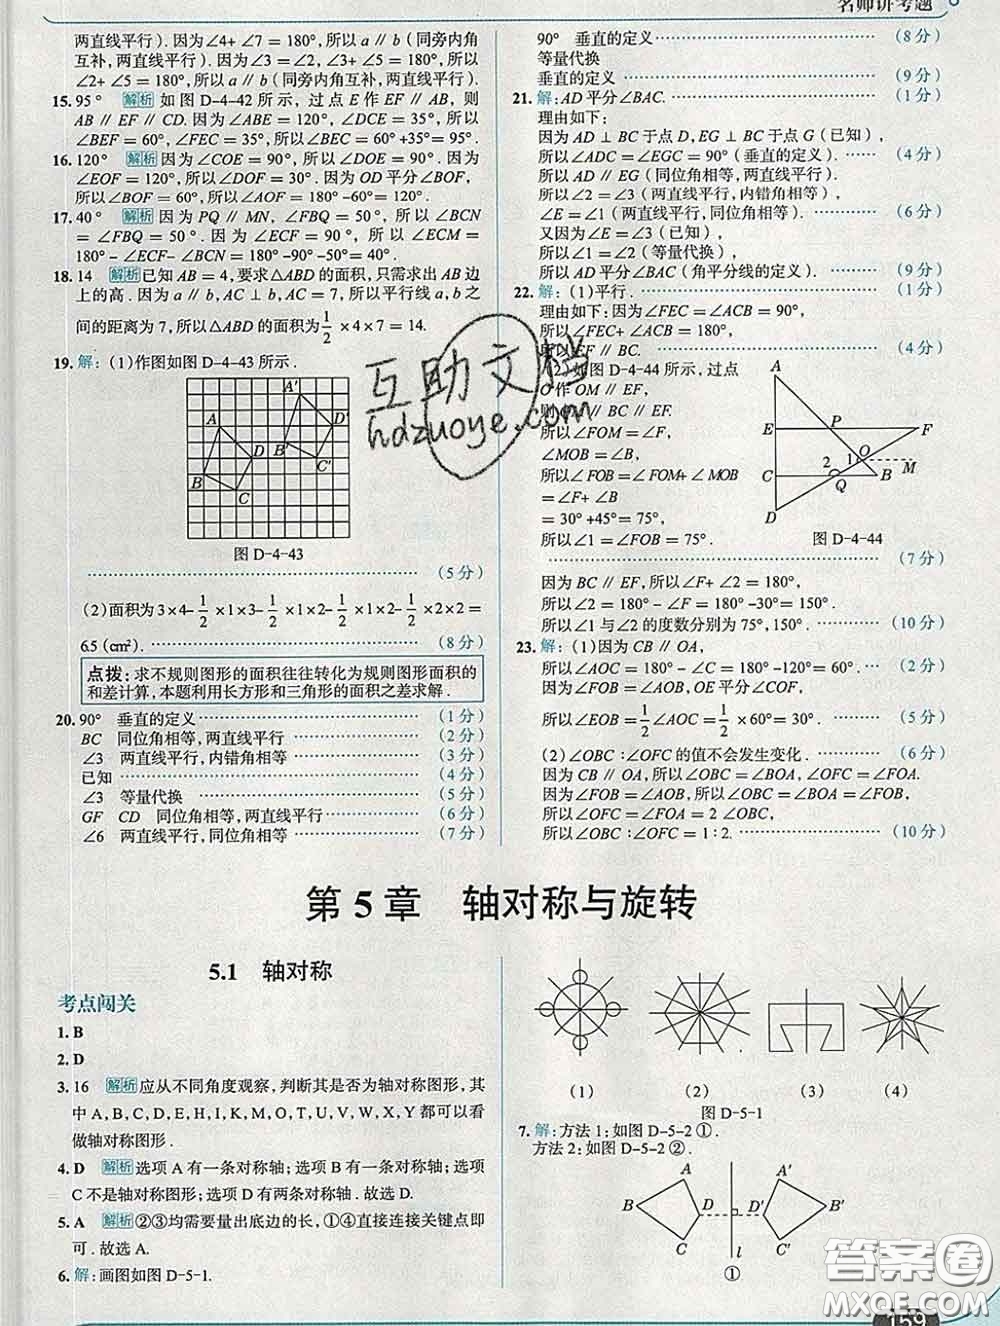 名师讲考题
两直线平行). 因为∠4+ ∠7 = 180°, 所以 a∥b (同旁内角
互补, 两直线平行). 因为∠3 = ∠2, ∠3+ ∠5 = 180°, 所以
∠2+ ∠5 = 180°, 所以 a∥b (同旁内角互补, 两直线平行).
15. 95° 解析 如图 D-4-42 所示, 过点 E 作 EF∥AB, 则
AB∥EF∥CD. 因为∠ABE = 120°, ∠DCE = 35°, 所以
∠BEF = 60°, ∠FEC = 35°, 所以∠BEC = 60° +35°= 95°.
16. 120° 解析 因为∠COE = 90°, 所以∠DOE = 90°. 因为
∠EOF = 120°, 所以∠DOF = 30°. 因为 OD 平分∠BOF,
所以∠BOF = 60°, 所以∠AOF = 180° -60° = 120°.
17. 40° 解析 因为 PQ∥MN, ∠FBQ = 50°, 所以∠BCN
= ∠FBQ = 50°. 因为∠ECF = 90°, 所以∠ECM =
180° - ∠ECF- ∠BCN = 180° -90° -50° = 40°.
18. 14 解析 已知 AB = 4, 要求△ABD 的面积, 只需求出 AB 边
上的高. 因为 a∥b, AC⊥b, AC = 7, 所以平行线 a, b 之
间的距离为 7, 所以△ABD 的面积为1/2 ×4×7 = 14.
19. 解: (1)作图如图 D-4-43 所示.
A′
A D′
D B′
B C C′
图 D-4-43
(5 分)
(2)面积为 3×4- 1/2 ×1×3- 1/2 ×1×3- 1/2 ×2×2 =
6.5 (cm²). (8 分)
点拨: 求不规则图形的面积往往转化为规则图形面积的
和差计算, 本题利用长方形和三角形的面积之差求解.
20. 90° 垂直的定义 (1 分)
BC 同位角相等, 两直线平行 (2 分)
∠3 两直线平行, 内错角相等 (3 分)
已知 (4 分)
∠3 等量代换 (5 分)
GF CD 同位角相等, 两直线平行 (6 分)
∠6 两直线平行, 同位角相等 (7 分)
90° 垂直的定义 (8 分)
等量代换
垂直的定义 (9 分)
21. 解: AD 平分∠BAC. (1 分)
理由如下:
因为 AD⊥BC 于点 D, EG⊥BC 于点 G (已知),
所以∠ADC = ∠EGC = 90° (垂直的定义). (4 分)
所以 AD∥EG (同位角相等, 两直线平行).
所以∠2 = ∠3 (两直线平行, 内错角相等),
∠E = ∠1 (两直线平行, 同位角相等). (6 分)
又因为∠E = ∠3 (已知),
所以∠1 = ∠2 (等量代换).
所以 AD 平分∠BAC (角平分线的定义). (9 分)
22. 解: (1)平行. (1 分)
理由如下: 因为∠FEC = ∠ACB = 90°,
所以∠FEC+ ∠ACB = 180°,
所以 EF∥BC. (4 分)
(2)如图 D-4-44 所示, 过点
O 作 OM∥EF,
则 OM∥BC∥EF.
所以∠FOM = ∠F,
∠MOB = ∠B,
所以∠FOB = ∠FOM+ ∠MOB
= ∠F+ ∠B
= 30° +45° = 75°.
所以∠FOB = 75°.
A
E P F
2 1 O M
C Q B
D
图 D-4-44
(7 分)
因为 BC∥EF, 所以∠F+ ∠2 = 180°,
所以∠2 = 180° - ∠F = 180° -30° = 150°.
所以∠1 与∠2 的度数分别为 75°, 150°. (10 分)
23. 解: (1)因为 CB∥OA,
所以∠AOC = 180° -∠C = 180° -120°= 60°. (2 分)
因为∠FOB = ∠AOB, OE 平分∠COF,
所以∠EOB = 1/2 ∠AOC = 1/2 ×60° = 30°. (5 分)
(2)∠OBC : ∠OFC 的值不会发生变化. (6 分)
因为 CB∥OA, 所以∠OBC = ∠BOA, ∠OFC = ∠FOA.
因为∠FOB = ∠AOB, 所以∠OBC = ∠BOA = ∠FOB,
所以∠OFC = ∠FOA = 2 ∠OBC,
所以∠OBC : ∠OFC = 1 : 2. (10 分)
第 5 章 轴对称与旋转
5.1 轴对称
考点闯关
1. B
2. D
3. 16 解析 应从不同角度观察, 判断其是否为轴对称图形, 其
中 A, B, C, D, E, H, I, K, M, O, T, U, V, W, X, Y 都可以看
做轴对称图形.
4. D 解析 选项 A 有一条对称轴; 选项 B 有一条对称轴; 选项
C 不是轴对称图形; 选项 D 有两条对称轴. 故选 D.
5. A 解析 ②③均需要量出底边的长, ①④直接连接关键点即
可. 故选 A.
6. 解: 画图如图 D-5-1.
(1) (2) (3) (4)
图 D-5-1
7. 解: 方法 1: 如图 D-5-2 ①.
方法 2: 如图 D-5-2 ②.
A A′
B D D′ B′
C l C′
①
159
互助文档
hdzuoye.com
答案圈
MXQE.COM